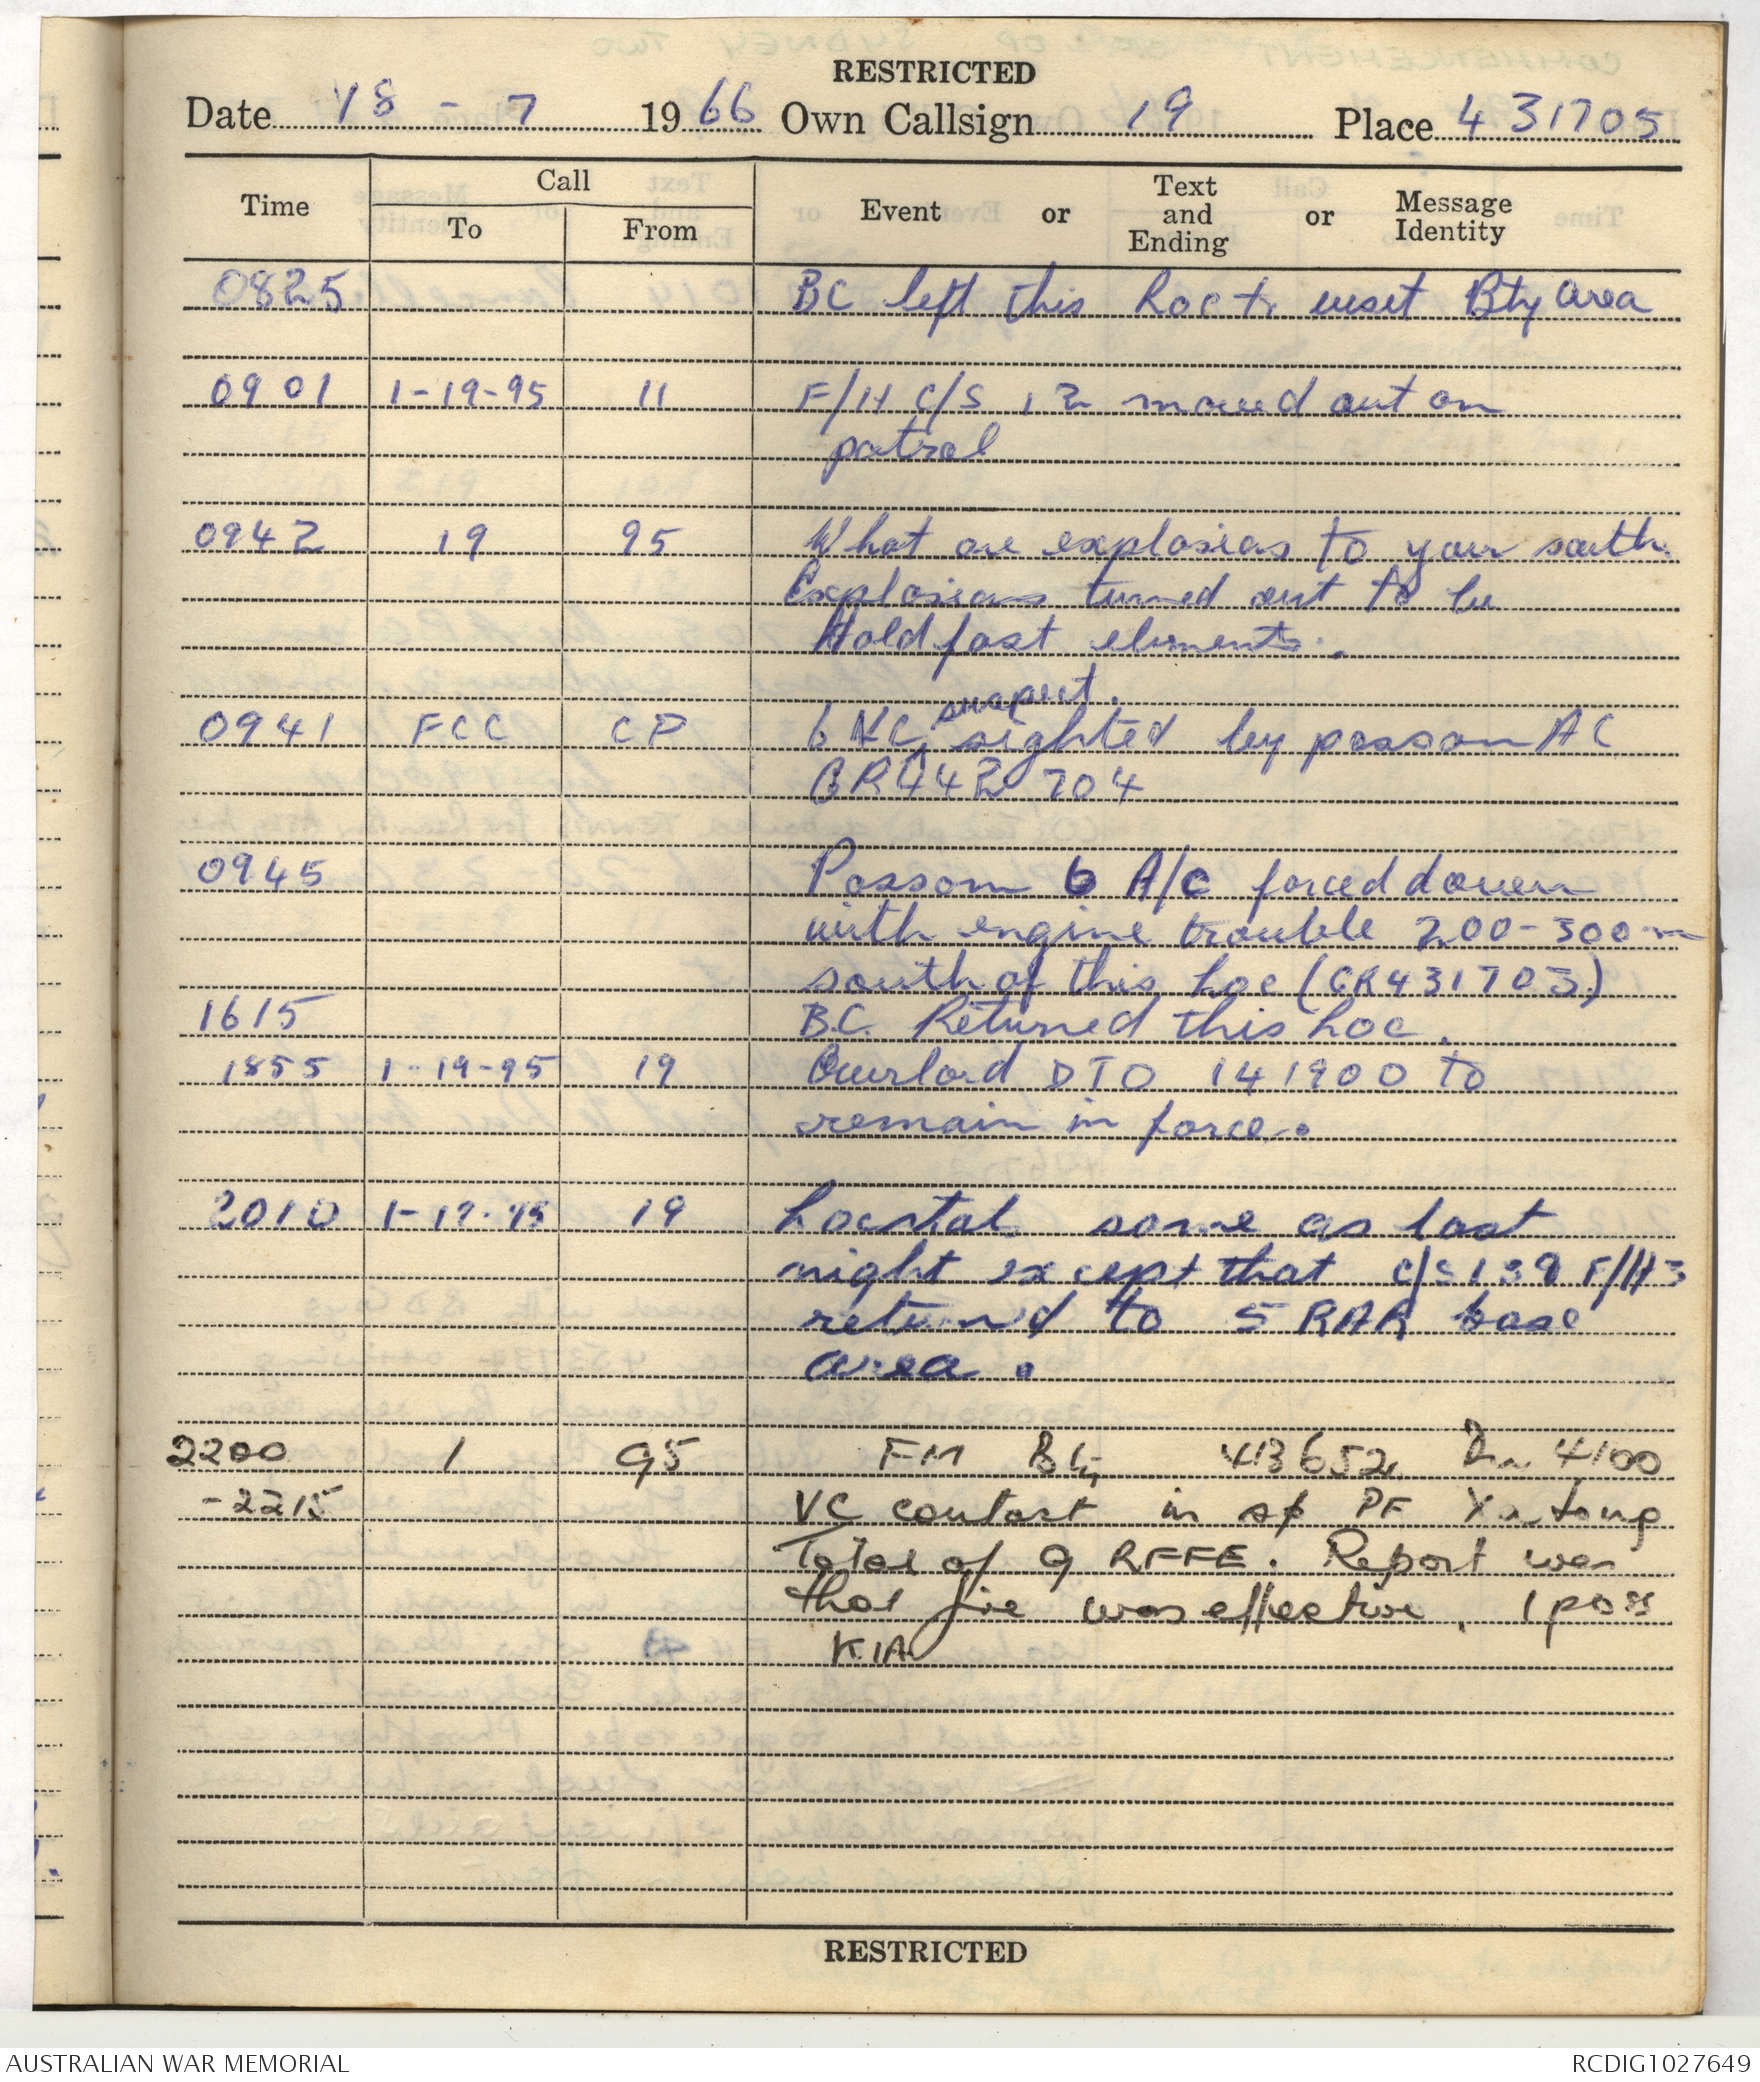 RESTRICTED
Date 18 - 7 1966 Own Callsign 19 Place 431705
Time Call To From Event or Text and Ending or Message Identity
0825 BC left this Loc to visit Bty area
0901 1-19-95 11 F/H C/S 12 moved out on
patrol
0942 19 95 What are explosions to your south.
Explosions turned out to be
Holdfast elements.
suspect.
0941 FCC CP 6 VC, sighted by possom AC
GR442704
0945 Possom 6 A/C forced down
with engine trouble 200-300 m
south of this Loc (GR431703)
1615 B.C. Returned this Loc.
1855 1-19-95 19 Overlord DTO 141900 to
remain in force.
2010 1-19-95 19 Locstat same as last
night except that c/s 139 F/H3
returned to 5 RAR base
area.
2200 1 95 FM Bty 413652 4100
-2215 VC contact in spt PF
Total of 9 RFFE. Report was
that fire was effective, 1 poss
KIA
RESTRICTED
AUSTRALIAN WAR MEMORIAL RCDIG1027649